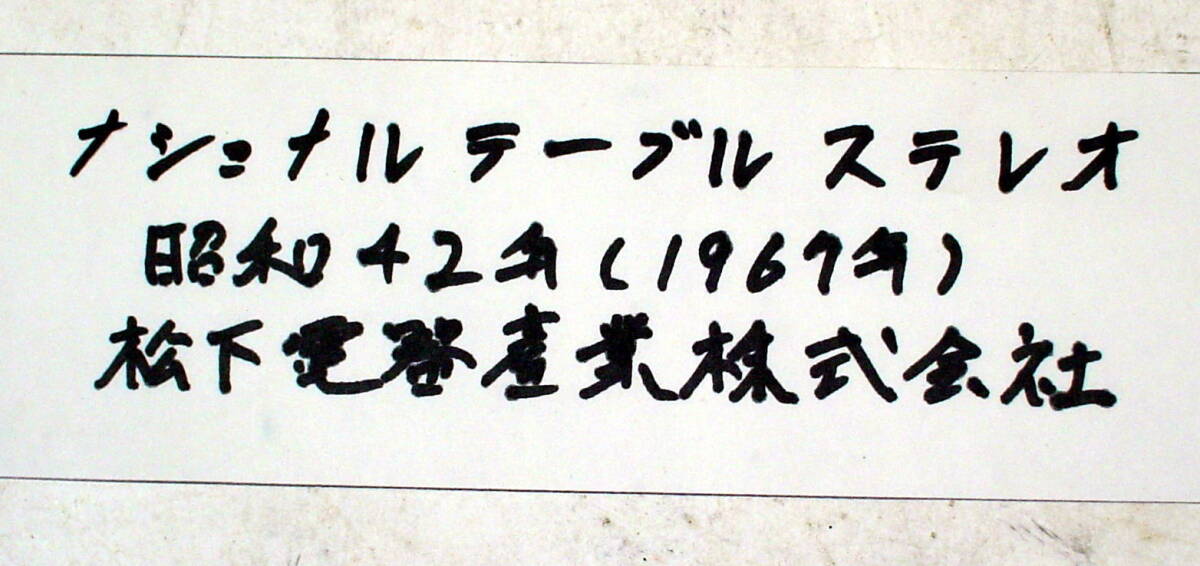 ナショナル テーブル ステレオ
昭和42年(1967年)
松下電器産業株式会社